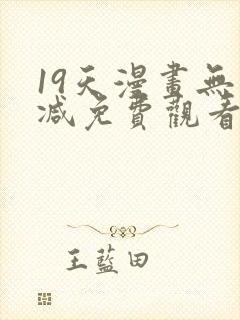 19天漫畫無
減免費觀看
王藍田